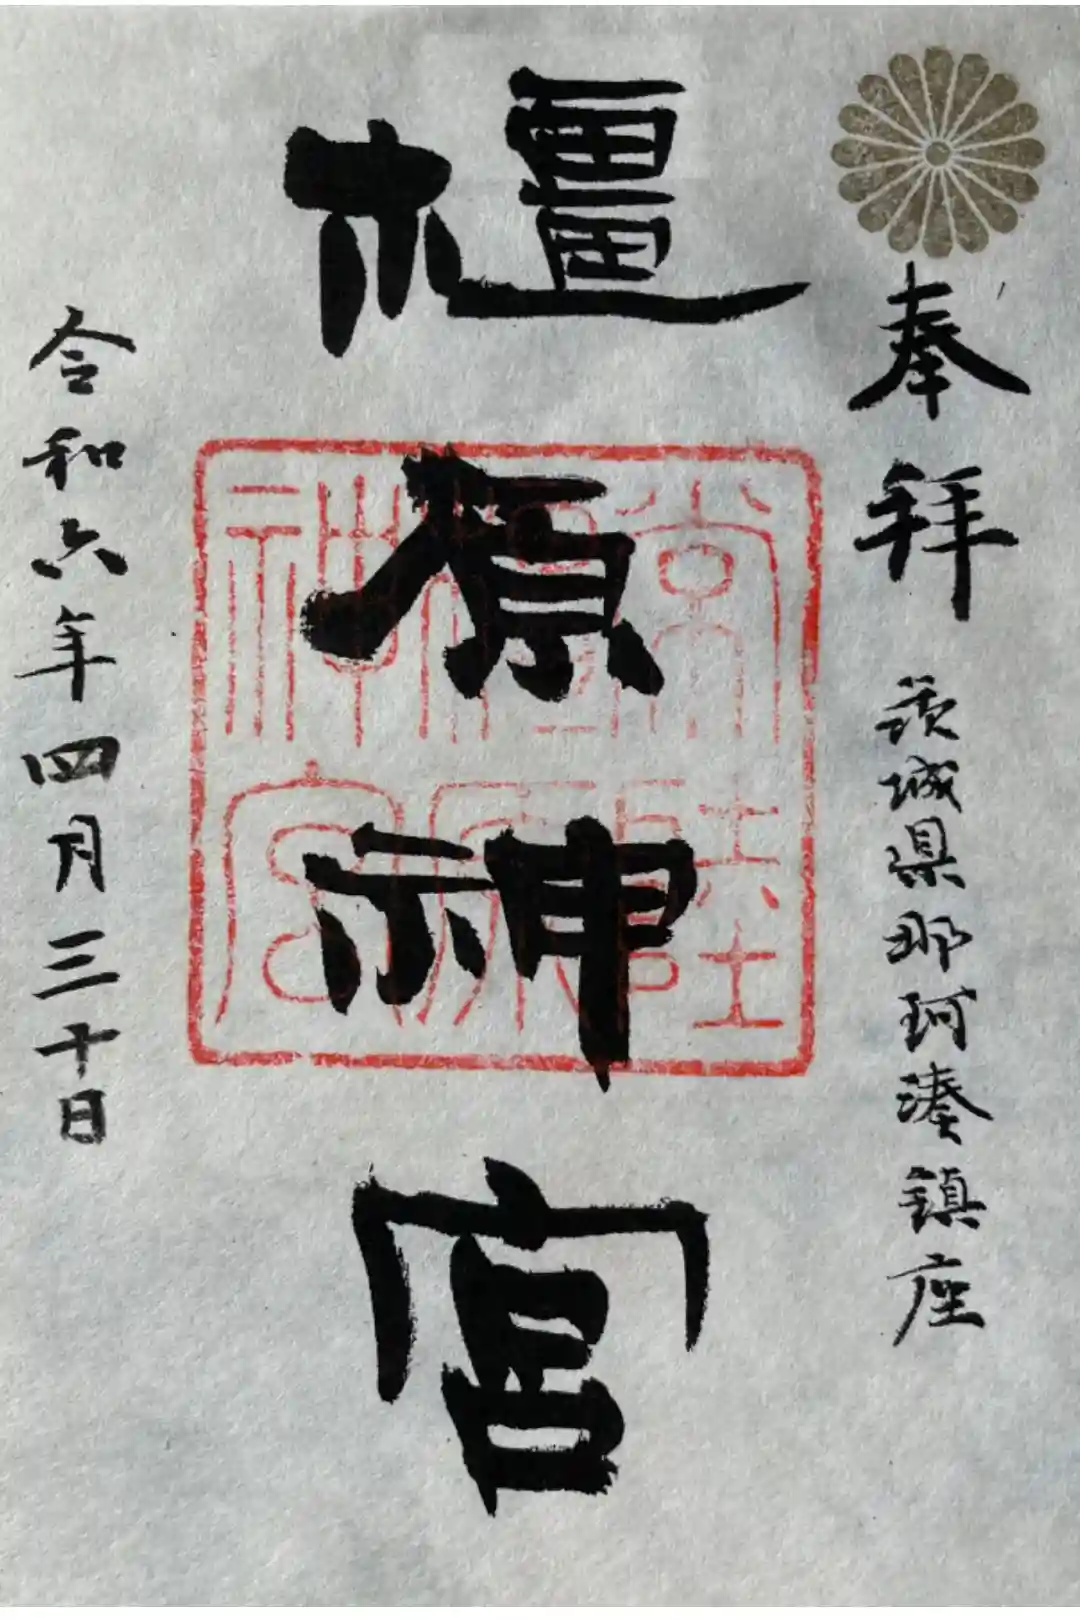 奉拝
茨城県那珂湊鎮座
橿原神宮
常陸橿原神宮
令和六年四月三十日